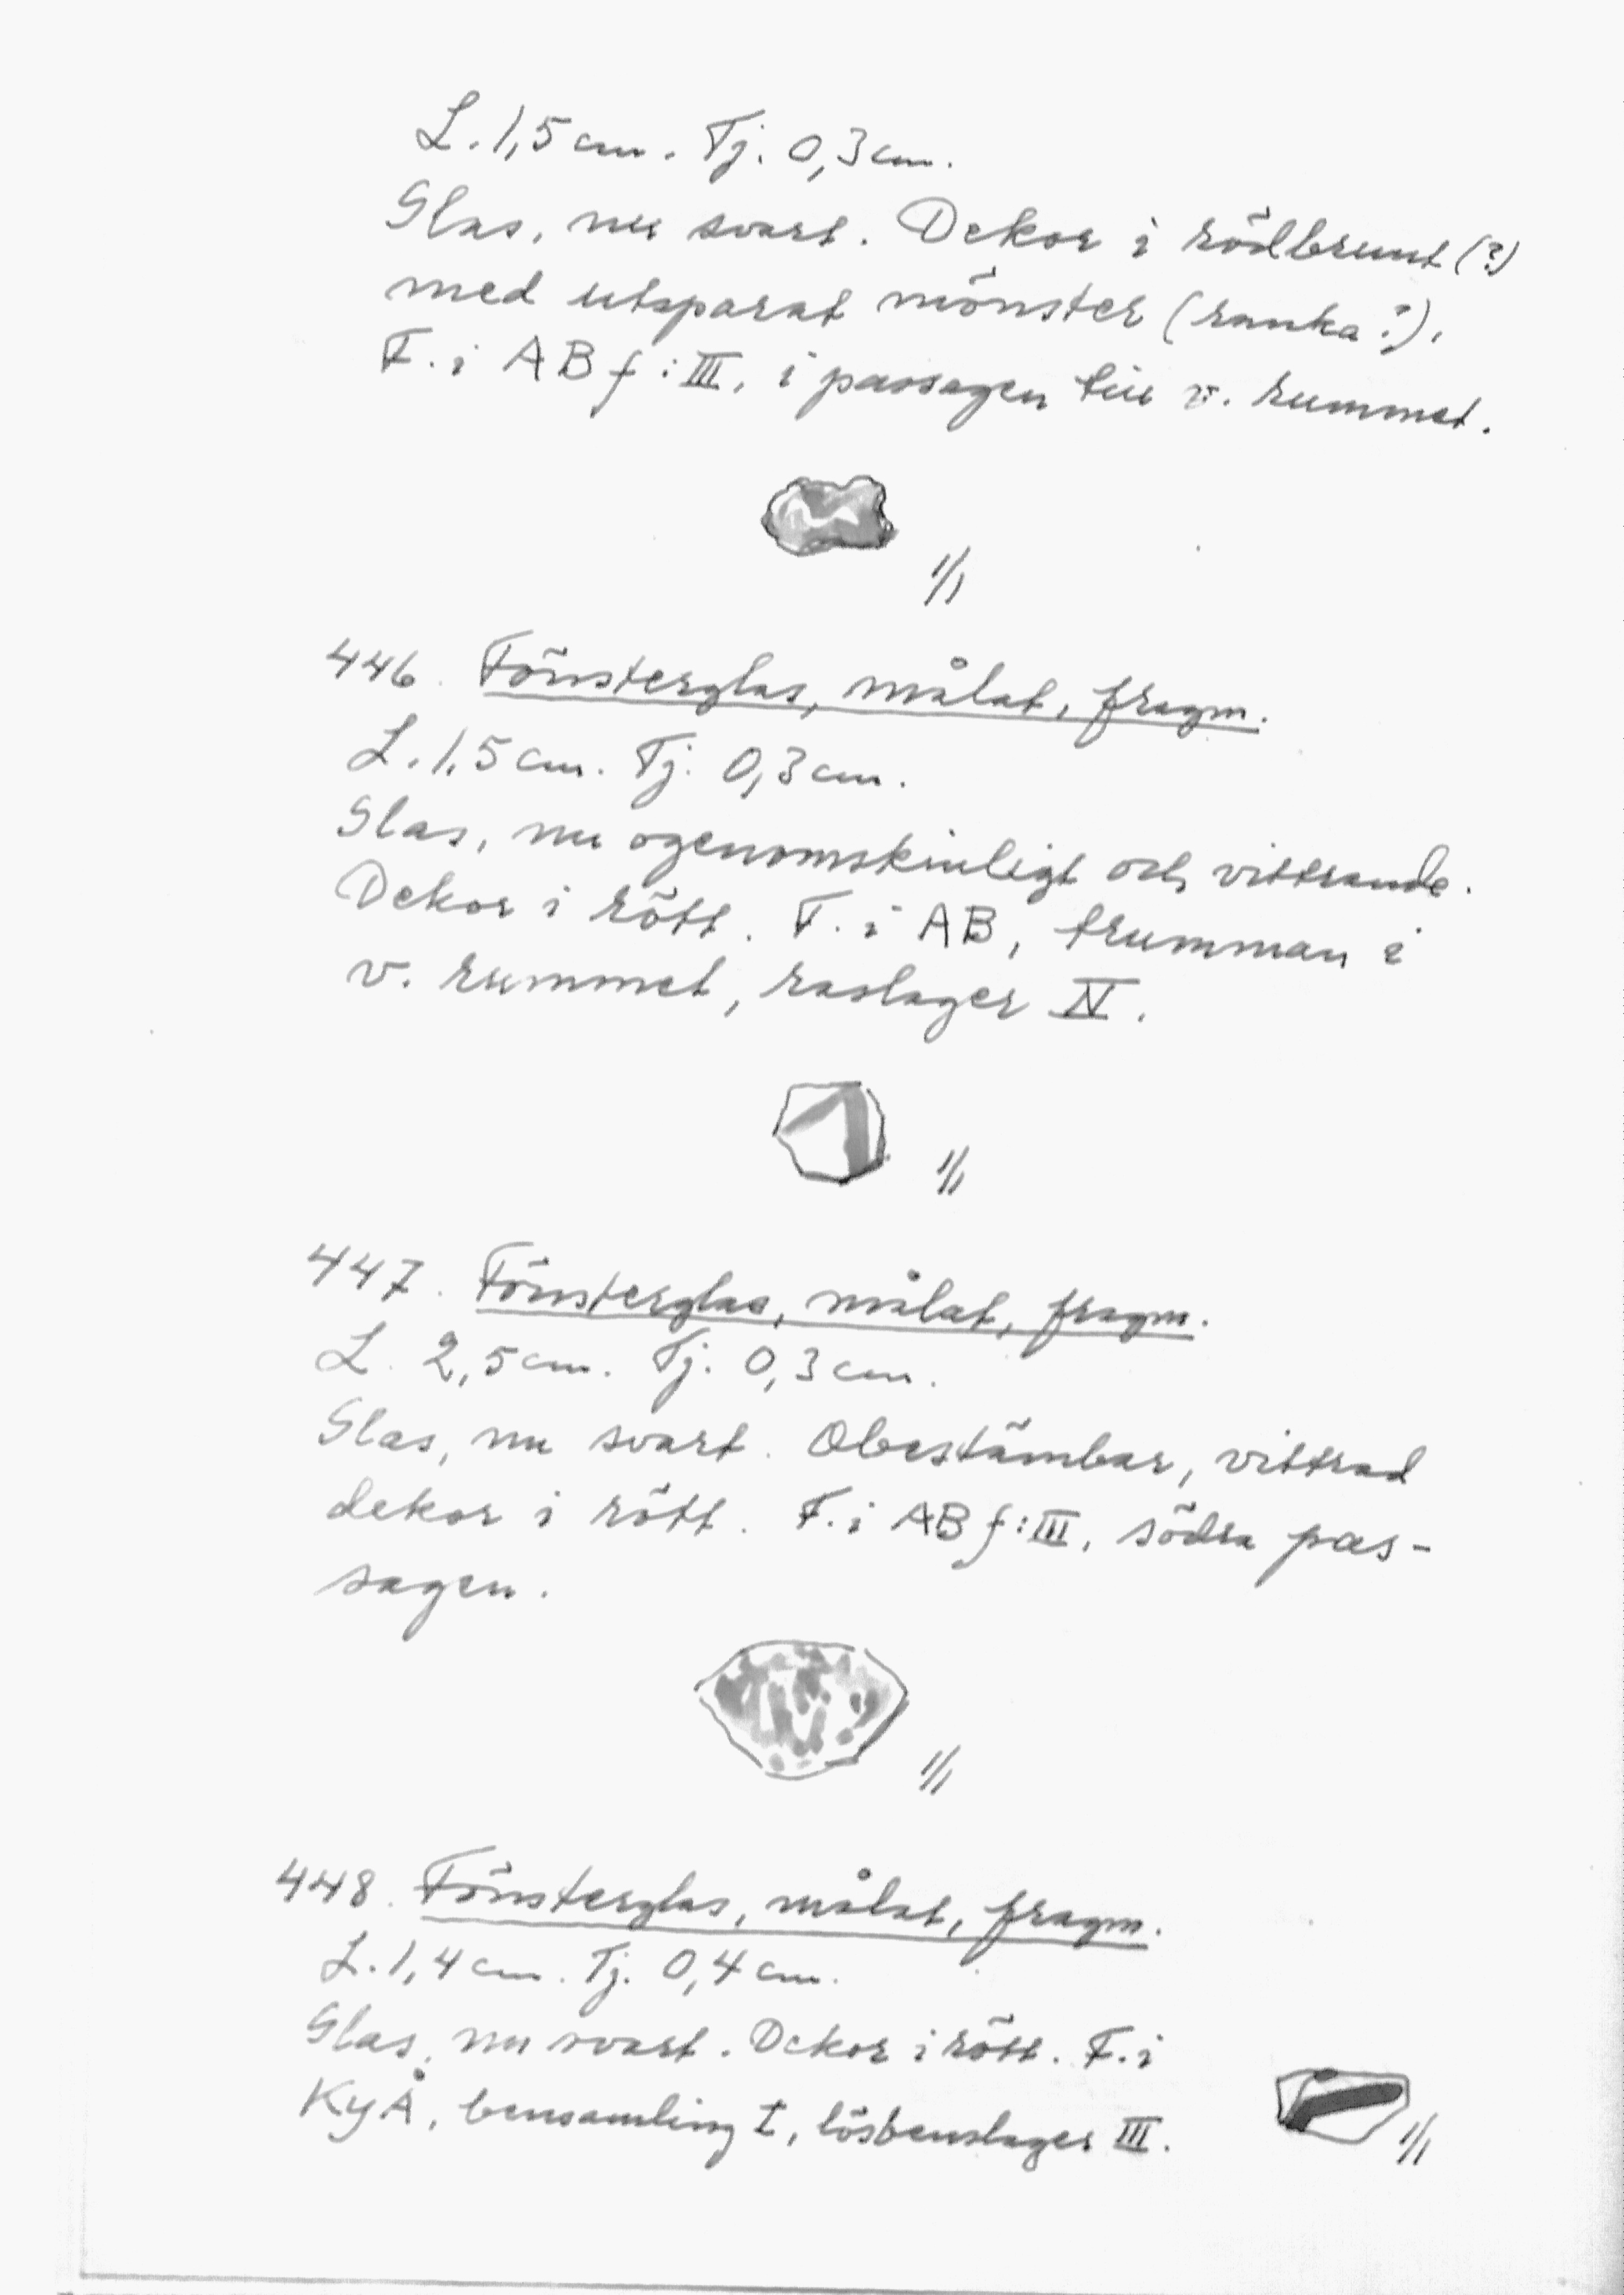 L. 1,5 cm. Tj. 0,3 cm.
Glas, nu svart. Dekor i rödbrunt (?)
med utsparat mönster (ranka?).
F. i ABf:III, i passagen till v. rummet.
1/1
446. Fönsterglas, målat, fragm.
L. 1,5 cm. Tj. 0,3 cm.
Glas, nu ogenomskinligt och vittrande.
Dekor i rött. F. i AB, trumman i
v. rummet, raslager IV.
1/1
447. Fönsterglas, målat, fragm.
L. 2,5 cm. Tj. 0,3 cm.
Glas, nu svart. Obestämbar, vittrad
dekor i rött. F. i ABf:III, södra pas-
sagen.
1/1
448. Fönsterglas, målat, fragm.
L. 1,4 cm. Tj. 0,4 cm.
Glas, nu svart. Dekor i rött. F. i
KyÅ, bensamling I, lösbenslager III.
1/1